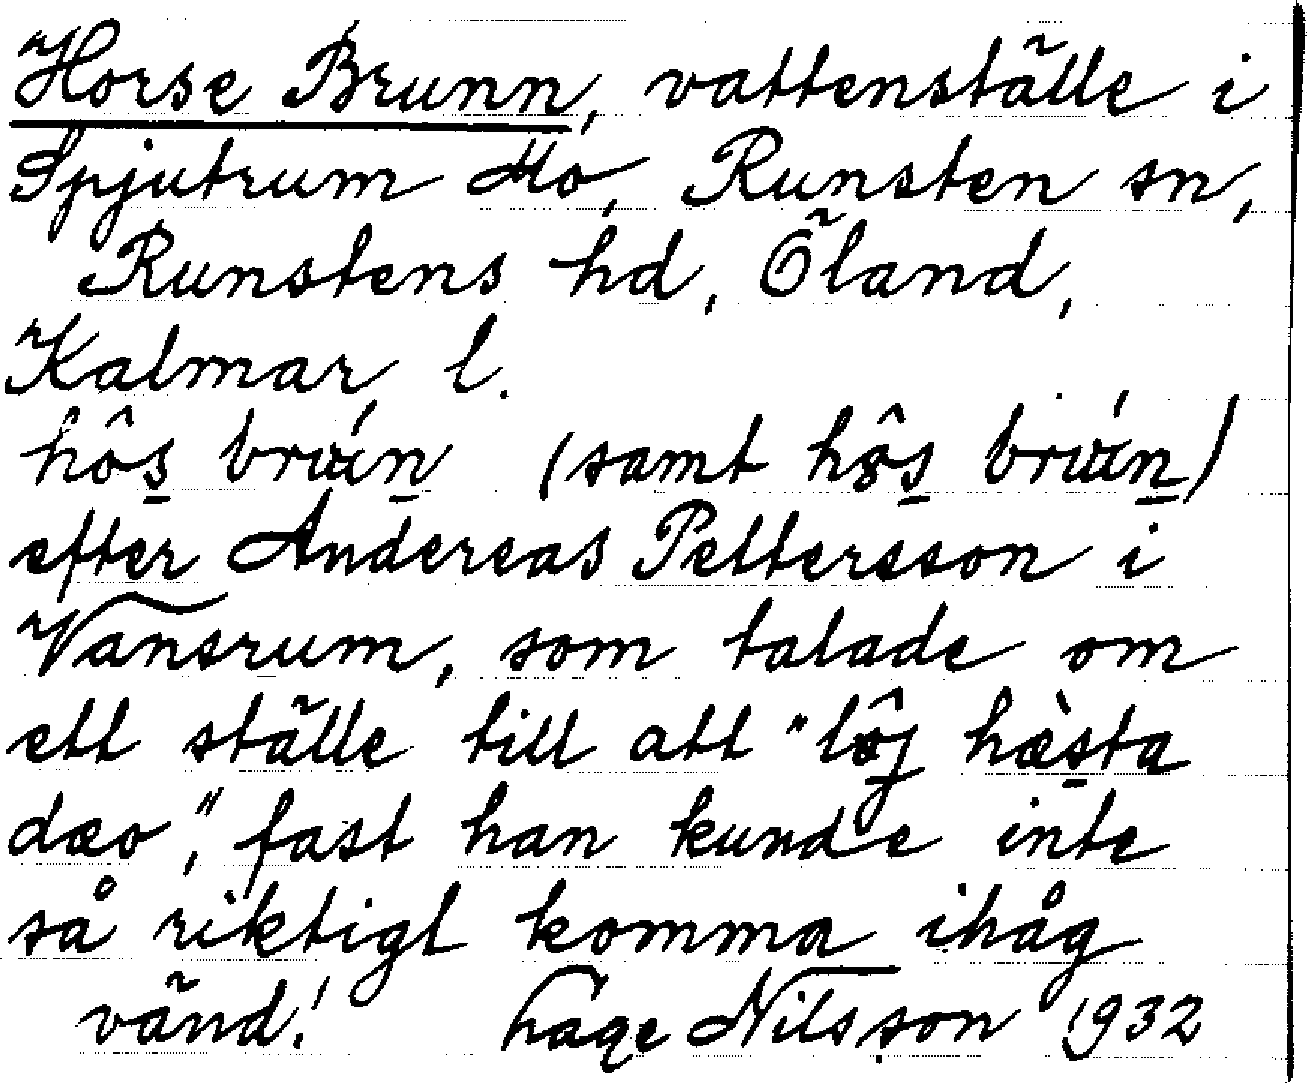 Horse Brunn, vattenställe i
Spjutrum Mo, Runsten sn,
Runstens hd, Öland,
Kalmar l.
hôs̱ brúṉ (samt hôs̱ brúṉ)
efter Andereas Pettersson i
Vansrum, som talade om
ett ställe till att "lôj hæ̀s̱ta
dæo", fast han kunde inte
så riktigt komma ihåg
vänd! Hage Nilsson 1932